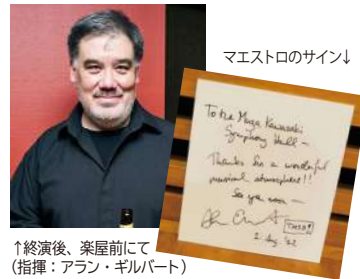 マエストロのサイン↓
To the Muza Kawasaki
Symphony Hall –
Thanks for a wonderful
musical atmosphere!!
See you soon –
2. Aug. '22
↑終演後、楽屋前にて
(指揮：アラン・ギルバート)